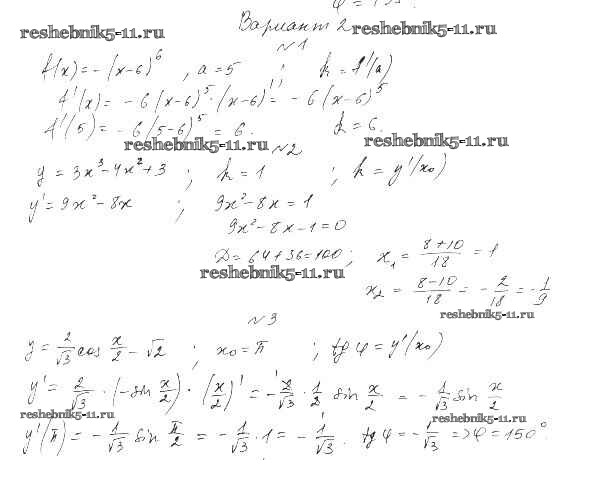 Вариант 2
reshebnik5-11.ru reshebnik5-11.ru
№1
f(x) = -(x-6)^6 , a = 5 ; k = f'(a)
f'(x) = -6(x-6)^5·(x-6)' = -6(x-6)^5
f'(5) = -6(5-6)^5 = 6. k = 6.
reshebnik5-11.ru reshebnik5-11.ru
№2
y = 3x³-4x²+3 ; k = 1 ; k = y'(x₀)
y' = 9x²-8x ; 9x²-8x = 1
9x²-8x-1=0
D = 64+36=100; x₁ = (8+10)/18 = 1
reshebnik5-11.ru
x₂ = (8-10)/18 = -2/18 = -1/9
reshebnik5-11.ru
№3
y = 2/√3 cos x/2 - √2 ; x₀ = π ; tg φ = y'(x₀)
y' = 2/√3 · (-sin x/2) · (x/2)' = -2/√3 · 1/2 sin x/2 = -1/√3 sin x/2
reshebnik5-11.ru reshebnik5-11.ru
y'(π) = -1/√3 sin π/2 = -1/√3 · 1 = -1/√3. tg φ = -1/√3 => φ = 150°.